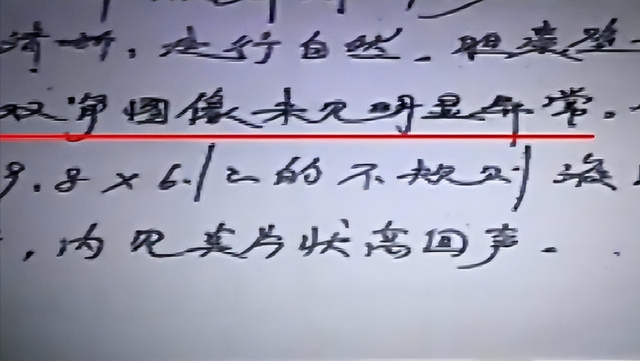 清晰,走行自然。胆囊壁
双肾图像未见明显异常。
9.8×6.1的不规则液
,内见类片状高回声。